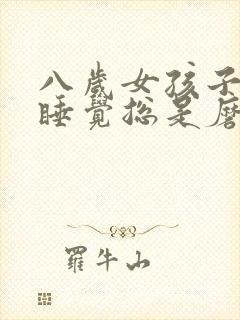 八歲女孩子
睡覺總是磨
羅牛山